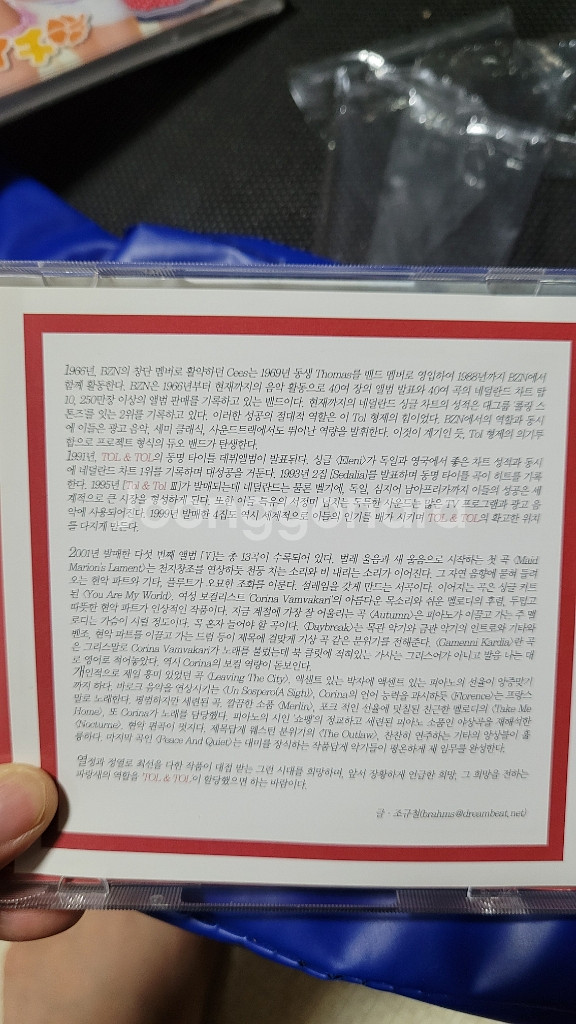 1966년, BZN의 창단 멤버로 활약하던 Cees는 1969년 동생 Thomas를 밴드 멤버로 영입하여 1988년까지 BZN에서
함께 활동한다. BZN은 1966년부터 현재까지의 음악 활동으로 40여 장의 앨범 발표와 40여 곡의 네덜란드 차트 탑
10, 250만장 이상의 앨범 판매를 기록하고 있는 밴드이다. 현재까지의 네덜란드 싱글 차트의 성적은 대그룹 롤링 스
톤즈를 잇는 2위를 기록하고 있다. 이러한 성공의 절대적 역할은 이 Tol 형제의 힘이었다. BZN에서의 역할과 동시
에 이들은 광고 음악, 세미 클래식, 사운드트랙에서도 뛰어난 역량을 발휘한다. 이것이 계기인 듯, Tol 형제의 의기투
합으로 프로젝트 형식의 듀오 밴드가 탄생한다.
1991년, TOL & TOL의 동명 타이틀 데뷔앨범이 발표된다. 싱글 〈Eleni〉가 독일과 영국에서 좋은 차트 성적과 동시
에 네덜란드 차트 1위를 기록하며 대성공을 거둔다. 1993년 2집 [Sedalia]를 발표하며 동명 타이틀 곡이 히트를 기록
한다. 1995년 [Tol & Tol Ⅲ]가 발매되는데 네덜란드는 물론 벨기에, 독일, 심지어 남아프리카까지 이들의 성공은 세
계적으로 큰 시장을 형성하게 된다. 또한 이들 특유의 서정미 넘치는 독특한 사운드는 많은 TV 프로그램과 광고 음
악에 사용되어진다. 1999년 발매한 4집도 역시 세계적으로 이들의 인기를 배가 시키며 TOL & TOL의 확고한 위치
를 다지게 만든다.
2001년 발매한 다섯 번째 앨범 [V]는 총 13곡이 수록되어 있다. 벌레 울음과 새 울음으로 시작하는 첫 곡 〈Maid
Marion's Lament〉는 천지창조를 연상하듯 천둥 치는 소리와 비 내리는 소리가 이어진다. 그 자연 음향에 묻혀 들려
오는 현악 파트와 기타, 플루트가 오묘한 조화를 이룬다. 설레임을 갖게 만드는 서곡이다. 이어지는 곡은 싱글 커트
된 〈You Are My World〉. 여성 보컬리스트 Corina Vamvakari의 아름다운 목소리와 쉬운 멜로디의 흐름, 두텁고
따뜻한 현악 파트가 인상적인 작품이다. 지금 계절에 가장 잘 어울리는 곡 〈Autumn〉은 피아노가 이끌고 가는 주 멜
로디는 가슴이 시릴 정도이다. 꼭 혼자 들어야 할 곡이다. 〈Daybreak〉는 목관 악기와 금관 악기의 인트로와 기타와
벤조, 현악 파트를 이끌고 가는 드럼 등이 제목에 걸맞게 기상 곡 같은 분위기를 전해준다. 〈Gamenni Kardia〉란 곡
은 그리스말로 Corina Vamvakari가 노래를 불렀는데 북 클릿에 적혀있는 가사는 그리스어가 아니고 발음 나는 대
로 영어로 적어놓았다. 역시 Corina의 보컬 역량이 돋보인다.
개인적으로 제일 흥미 있었던 곡 〈Leaving The City〉. 액센트 있는 박자에 액센트 있는 피아노의 선율이 앙증맞기
까지 하다. 바로크 음악을 연상시키는 〈Un Sospero(A Sigh)〉, Corina의 언어 능력을 과시하듯 〈Florence〉는 프랑스
말로 노래한다. 평범하지만 세련된 곡, 깔끔한 소품 〈Merlin〉, 포크 적인 선율에 덧칠된 친근한 멜로디의 〈Take Me
Home〉, 또 Corina가 노래를 담당했다. 피아노의 시인 '쇼팽'의 정교하고 세련된 피아노 소품인 야상곡을 재해석한
〈Nocturne〉, 현악 편곡이 멋지다. 제목답게 웨스턴 분위기의 〈The Outlaw〉, 찬찬히 연주하는 기타의 앙상블이 훌
륭하다. 마지막 곡인 〈Peace And Quiet〉는 대미를 장식하는 작품답게 악기들이 평온하게 제 임무를 완성한다.
열성과 정열로 최선을 다한 작품이 대접 받는 그런 시대를 희망하며, 앞서 장황하게 언급한 희망, 그 희망을 전하는
파랑새의 역할을 'TOL & TOL'이 담당했으면 하는 바람이다.
글 · 조규철(bruhms@dreambeat.net)